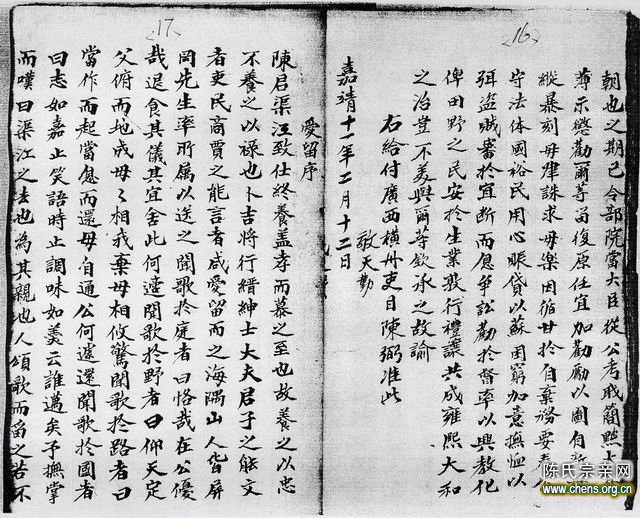 16
朝也之期已令部院當大臣從公考戝簡黜
薄示懲勸爾等苟復原任宜加勸勵以圖自新
縱暴刻毋肆誅求毋樂因循甘於自棄務要奉
守法体國裕民用心賑貸以蘇困窮加意撫恤以
弭盜賊審於宜斷而息爭訟勤於督率以興教化
俾田野之民安於生業敦行禮讓共成雍熙大和
之治豈不美與爾等欽承之故諭
右給付廣西橫州吏目陳弼准此
敬天勤
嘉靖十一年二月十二日
17
愛留序
陳君渠江致仕終養盖孝而慕之至也故養之以忠
不養之以祿也卜吉將行縉紳士大夫君子之能文
者吏民商賈之能言者咸愛留而之海隅山人皆屏
岡先生率所属以送之聞歌於庭者曰恪哉在公優
哉退食其儀其宜舍此何適聞歌於野者曰仰天定
父俯而地成母々相我棄母相攸驚聞歌於路者曰
當作而起當息而還毋自通公何遽還聞歌於國者
曰志如嘉止笑語時止調味如羮云誰邁矣予撫掌
而嘆曰渠江之去也為其親也人頌歌而留之若不
陈氏宗亲网
www.chens.org.cn